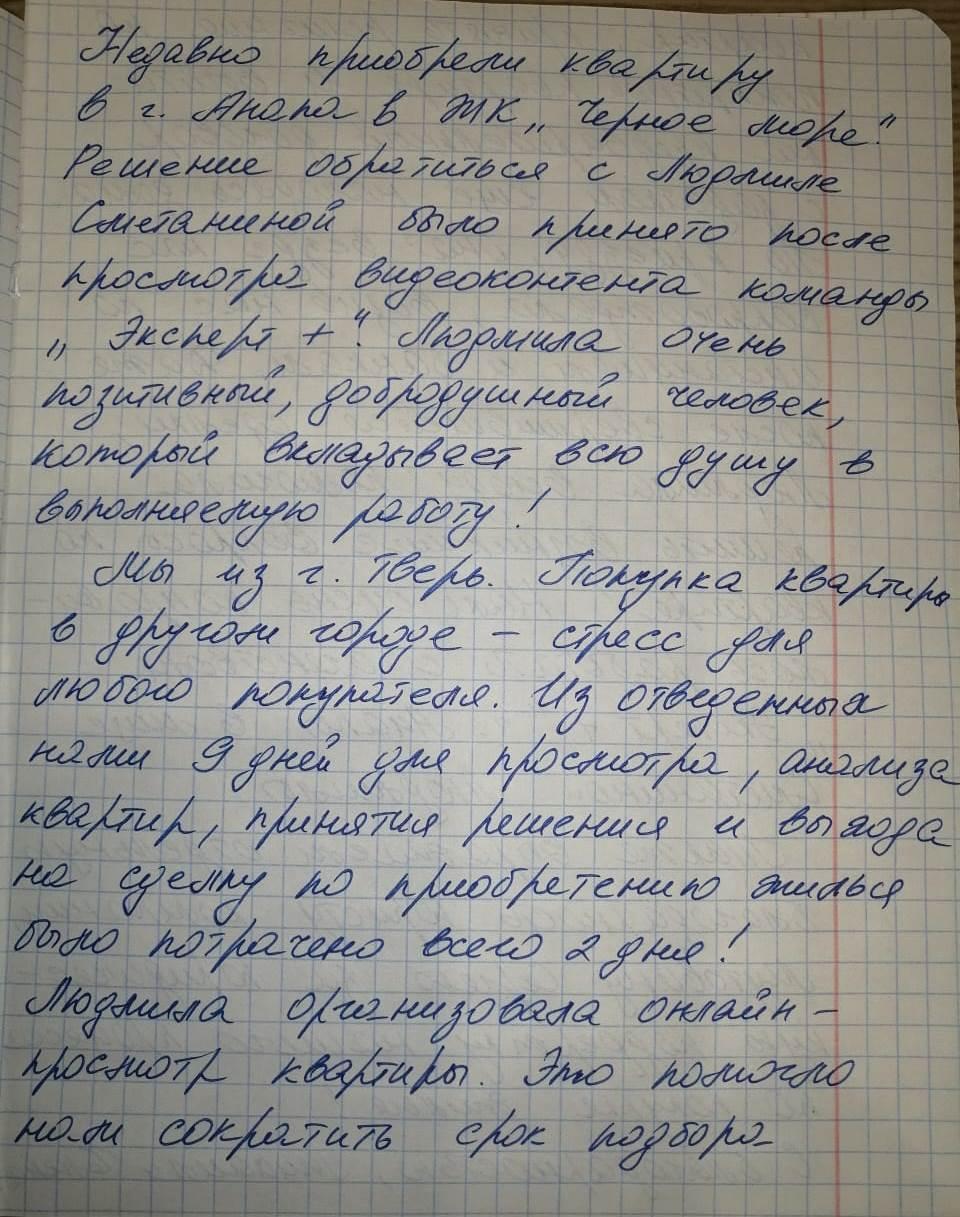 Недавно приобрели квартиру
в г. Анапа в ЖК „Черное море".
Решение обратиться с Людмиле
Сметаниной было принято после
просмотра видеоконтента команды
„Эксперт +". Людмила очень
позитивный, добродушный человек,
который вкладывает всю душу в
выполняемую работу!
Мы из г. Тверь. Покупка квартиры
в другом городе – стресс для
любого покупателя. Из отведенных
нами 9 дней для просмотра, анализа
квартир, принятия решения и выхода
на сделку по приобретению жилья
было потрачено всего 2 дня!
Людмила организовала онлайн –
просмотр квартиры. Это помогло
нам сократить срок подбора